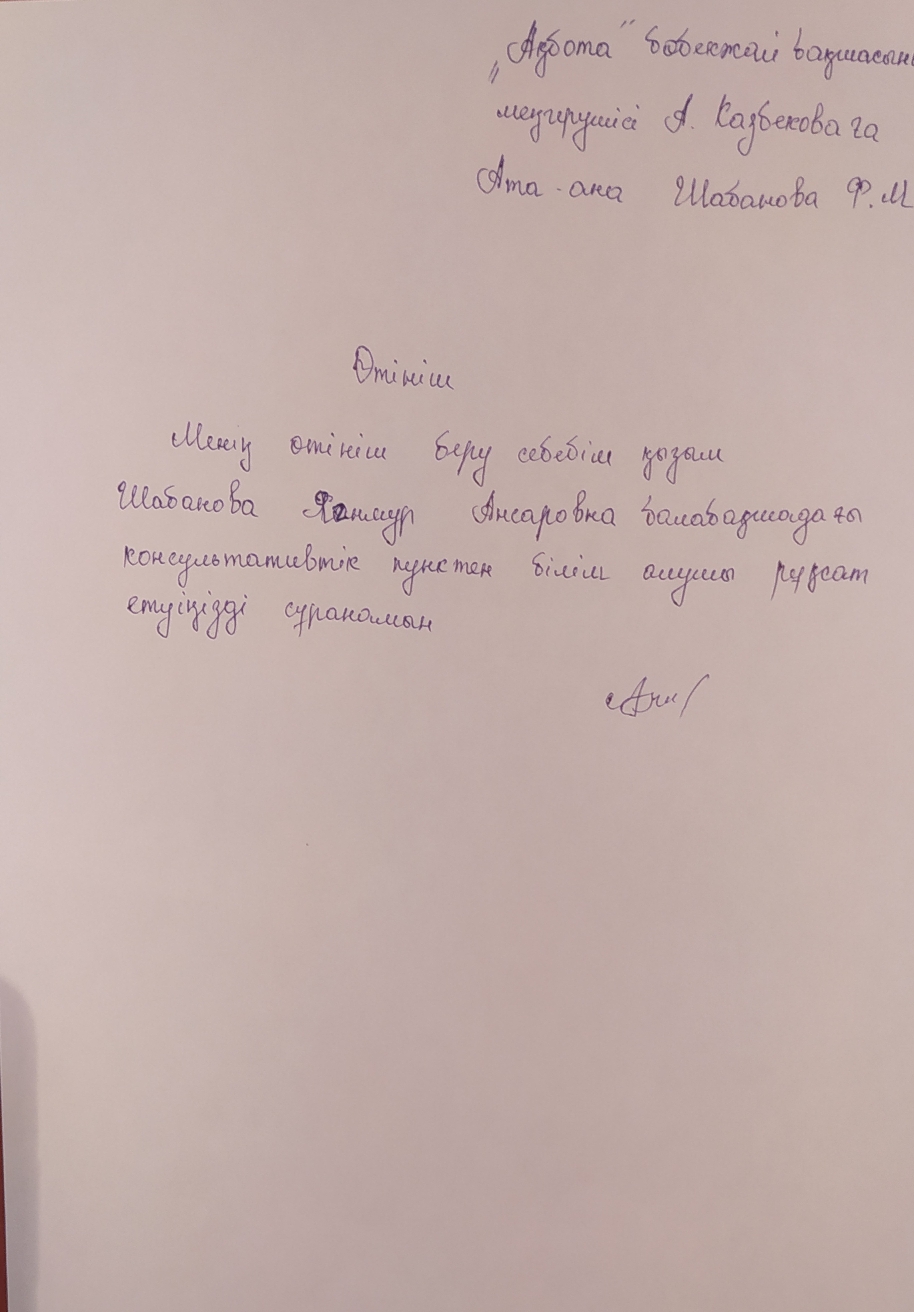 „Ақбота" бөбекжай бақшасын
меңгерушісі А. Казбековаға
Ата-ана Шабанова Ф.М
Өтініш
Менің өтініш беру себебім қызым
Шабанова Ансаровна балабақшадағы
консультативтік пунктен білім алушы рұқсат
етуіңізді сұранамын